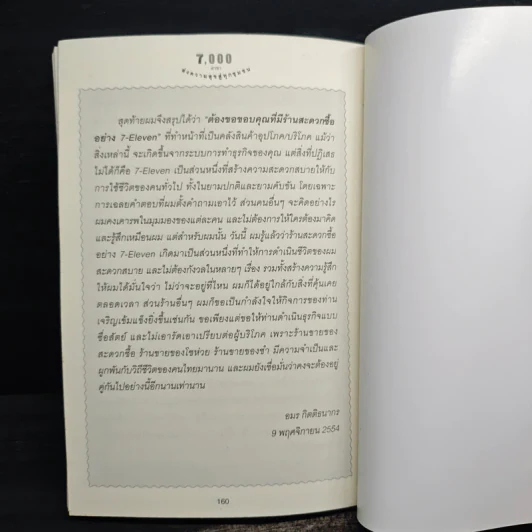 7,000
สาขา
ส่งความสุขสู่ทุกชุมชน
สุดท้ายผมจึงสรุปได้ว่า "ต้องขอขอบคุณที่มีร้านสะดวกซื้อ
อย่าง 7-Eleven" ที่ทำหน้าที่เป็นคลังสินค้าอุปโภค/บริโภค แม้ว่า
สิ่งเหล่านี้ จะเกิดขึ้นจากระบบการทำธุรกิจของคุณ แต่สิ่งที่ปฏิเสธ
ไม่ได้ก็คือ 7-Eleven เป็นส่วนหนึ่งที่สร้างความสะดวกสบายให้กับ
การใช้ชีวิตของคนทั่วไป ทั้งในยามปกติและยามคับขัน โดยเฉพาะ
การเฉลยคำตอบที่ผมตั้งคำถามเอาไว้ ส่วนคนอื่นๆ จะคิดอย่างไร
ผมคงเคารพในมุมมองของแต่ละคน และไม่ต้องการให้ใครต้องมาคิด
และรู้สึกเหมือนผม แต่สำหรับผมนั้น วันนี้ ผมรู้แล้วว่าร้านสะดวกซื้อ
อย่าง 7-Eleven เกิดมาเป็นส่วนหนึ่งที่ทำให้การดำเนินชีวิตของผม
สะดวกสบาย และไม่ต้องกังวลในหลายๆ เรื่อง รวมทั้งสร้างความรู้สึก
ให้ผมได้มั่นใจว่า ไม่ว่าจะอยู่ที่ไหน ผมก็ได้อยู่ใกล้กับสิ่งที่คุ้นเคย
ตลอดเวลา ส่วนร้านอื่นๆ ผมก็ขอเป็นกำลังใจให้กิจการของท่าน
เจริญเข้มแข็งยิ่งขึ้นเช่นกัน ขอเพียงแต่ขอให้ท่านดำเนินธุรกิจแบบ
ซื่อสัตย์ และไม่เอารัดเอาเปรียบต่อผู้บริโภค เพราะร้านขายของ
สะดวกซื้อ ร้านขายของโชห่วย ร้านขายของชำ มีความจำเป็นและ
ผูกพันกับวิถีชีวิตของคนไทยมานาน และผมยังเชื่อมั่นว่าคงจะต้องอยู่
คู่กันไปอย่างนี้อีกนานเท่านาน
อมร กิตติธนากร
9 พฤศจิกายน 2554
160